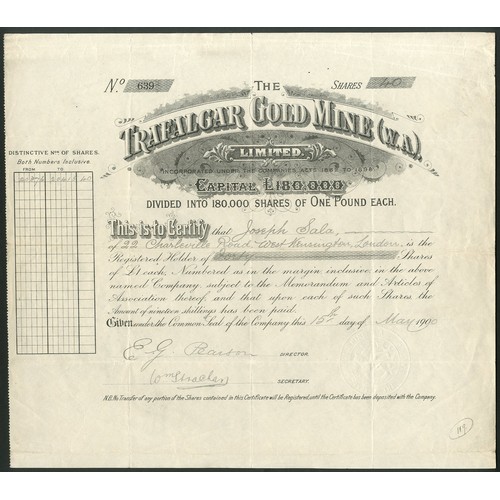 No 639
THE
SHARES 40
TRAFALGAR GOLD MINE (W.A.)
LIMITED.
INCORPORATED UNDER THE COMPANIES ACTS 1862 TO 1898
CAPITAL £180,000
DIVIDED INTO 180,000 SHARES OF ONE POUND EACH.
DISTINCTIVE Nos. OF SHARES.
Both Numbers Inclusive
FROM TO
This is to Certify that Joseph Sala,
of 22 Charleville Road West Kensington London, is the
Registered Holder of Forty Shares
of £1 each, Numbered as in the margin inclusive in the above
named Company, subject to the Memorandum and Articles of
Association thereof, and that upon each of such Shares the
Amount of nineteen shillings has been paid.
Given under the Common Seal of the Company this 15th day of May 1900
E G Pearson DIRECTOR.
Wm Strachan SECRETARY.
N.B. No Transfer of any portion of the Shares contained in this Certificate will be Registered, until the Certificate has been deposited with the Company.